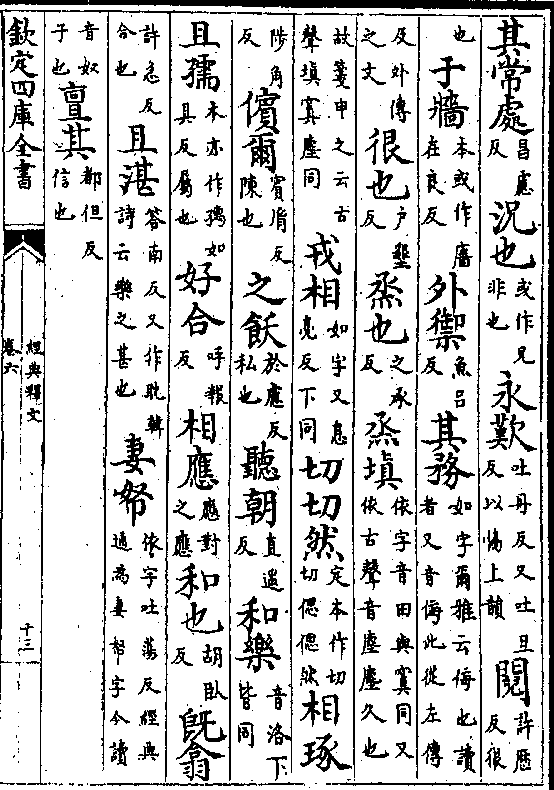 其常處昌慮反況也或作兄非也永歎吐丹反又吐旦反以協上韻鬩許歷反很
也于牆本或作廧在良反外禦魚呂反其務如字爾雅云侮也讀者又音侮此從左傳
及外傳之文很也戶墾反烝也之承反烝填依字音田與窴同又依古聲音塵塵久也
故箋申之云古聲填窴塵同戎相如字又息亮反下同切切然定本作切切偲偲然相琢
陟角反儐爾賓胤反陳也之飫於慮反私也聽朝直遙反和樂音洛下皆同
且孺本亦作孺如具反屬也好合呼報反相應應對之應和也胡臥反既翕
許急反合也且湛答南反又作耽韓詩云樂之甚也妻帑依字吐蕩反經典通為妻帑字今讀
音奴子也亶其都但反信也
欽定四庫全書
經典釋文
卷六
十三